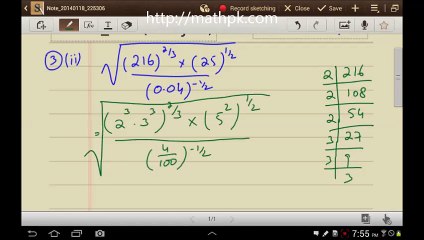 http://mathpk.com
Note_20140118_226306
Record sketching
③(ii) √((216)^2/3 × (25)^1/2 / (0.04)^-1/2)
= √((2^3 · 3^3)^2/3 × (5^2)^1/2 / (4/100)^-1/2)
2 | 216
2 | 108
2 | 54
3 | 27
3 | 9
3
1/1
7:55 PM